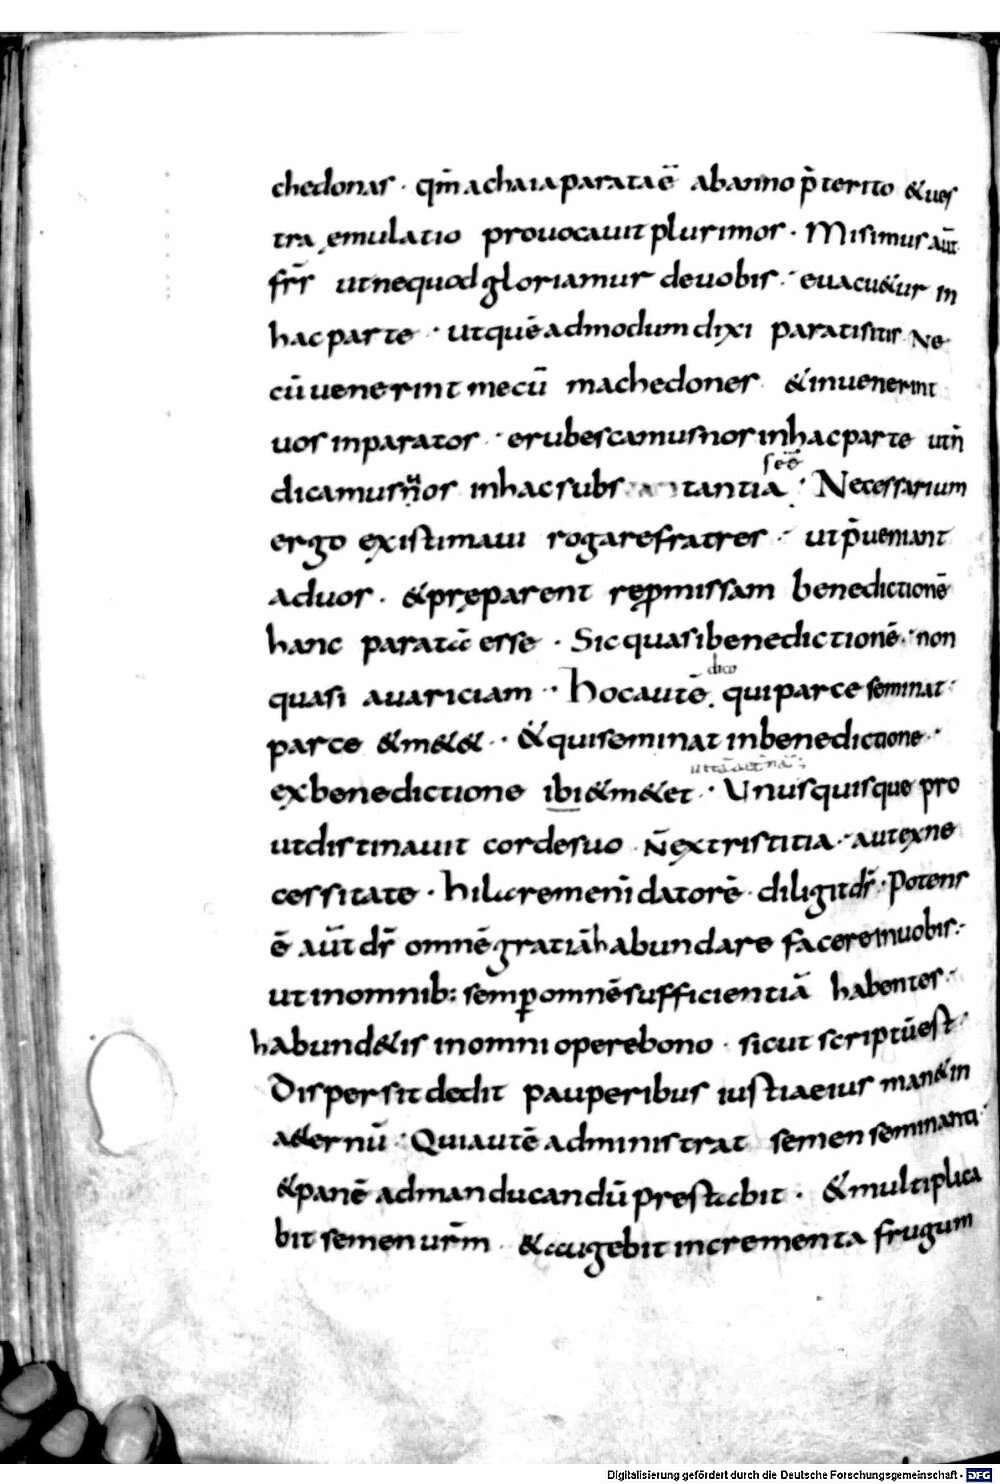 chedonas · qm̄ achaia parata ē ab anno p̄terito & ues
tra ęmulatio prouocauit plurimos · Misimus aūt
frs̄ ut ne quod gloriamur de uobis · euacu&ur in
hac parte · ut quēadmodum dixi parati sitis Ne
cū uenerint mecū machedones & inuenerint
uos inparatos · erubescamus nos in hac parte ut n̄
dicamus ños in hac subs tantia · Necessarium
ergo existimaui rogare fratres · ut p̄ueniant
ad uos · & pręparent repmissam benedictionē
hanc paratā esse · Sic quasi benedictionē · non
dico
quasi auariciam · hoc autē qui parce seminat ·
parce & m&& · & qui seminat in benedictione ·
ex benedictione ibi & m&et · Unusquisque pro
ut distinauit corde suo N̄ ex tristitia · aut ex ne
cessitate · hilarem enī datorē · diligit ds̄ · Potens
ē aūt ds̄ omnē gratiā habundare facere in uobis ·
ut in omnib: semp omnē sufficientiā habentes ·
habund&is in omni opere bono · sicut scriptū est ·
Dispersit dedit pauperibus iustia eius man& in
a&ernū · Qui autē administrat semen seminanti ·
& panē ad manducandū prestabit · & multiplica
bit semen urm̄ & augebit incrementa frugum
Digitalisierung gefördert durch die Deutsche Forschungsgemeinschaft - DFG